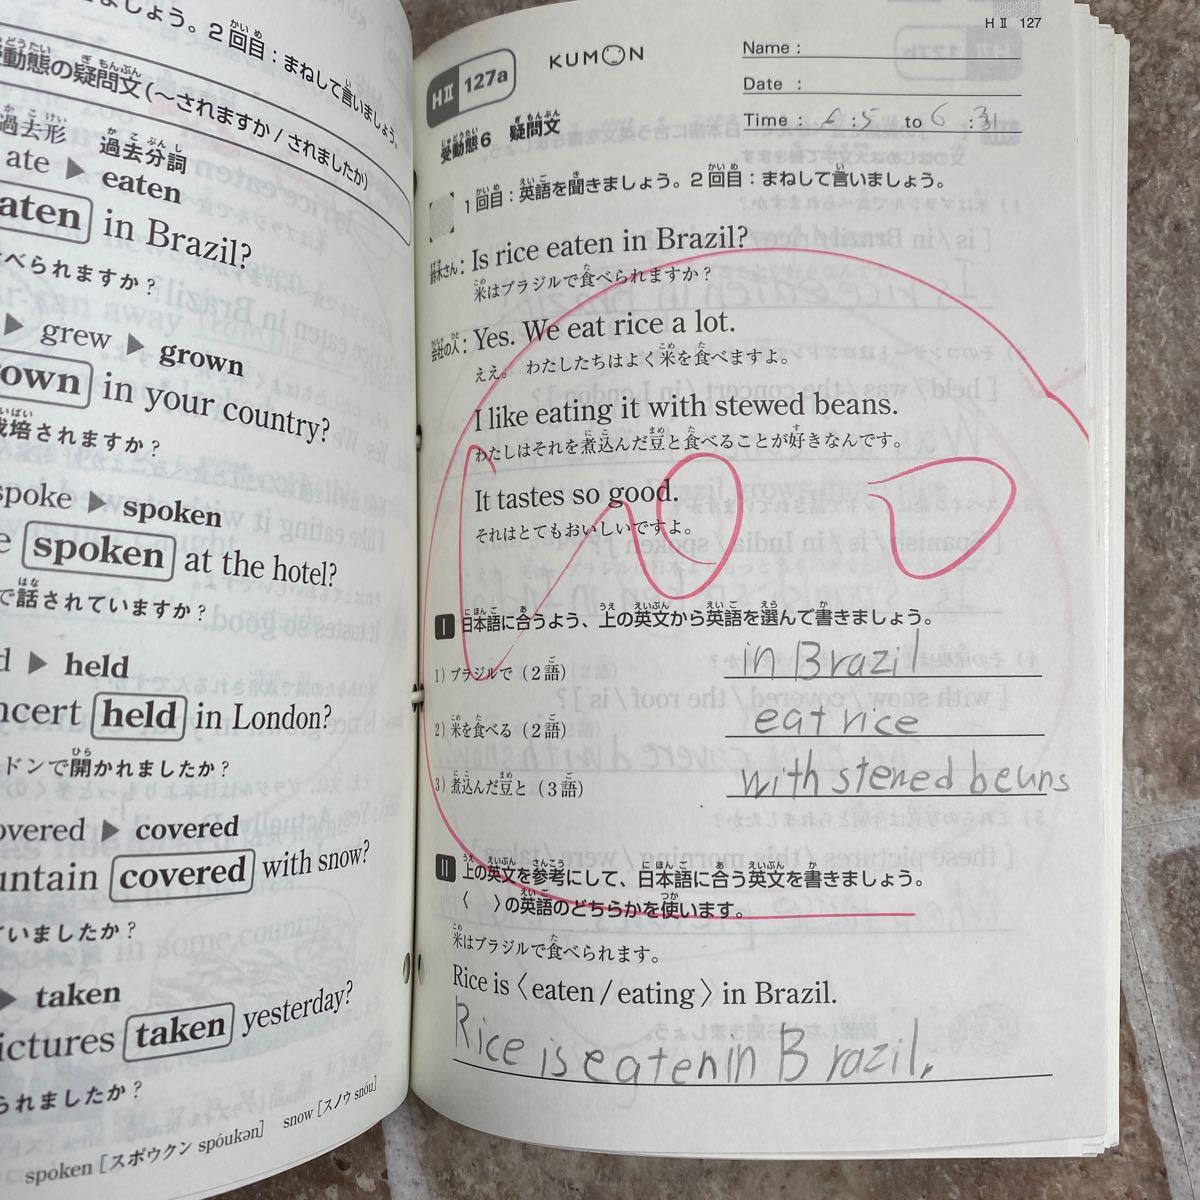 しょう。2回目：まねして言いましょう。
受動態の疑問文（～されますか/されましたか）
過去形 過去分詞
ate ▶ eaten
eaten in Brazil?
べられますか？
▶ grew ▶ grown
grown in your country?
栽培されますか？
spoke ▶ spoken
spoken at the hotel?
で話されていますか？
▶ held
held in London?
ドンで開かれましたか？
covered ▶ covered
covered with snow?
いましたか？
▶ taken
taken yesterday?
られましたか？
spoken［スポウクン spóukən］ snow［スノウ snóu］
HⅡ 127
HⅡ 127a
KUMON
Name :
Date :
Time : 6 : 5 to 6 : 31
受動態6 疑問文
1回目：英語を聞きましょう。2回目：まねして言いましょう。
鈴木さん：Is rice eaten in Brazil?
米はブラジルで食べられますか？
会社の人：Yes. We eat rice a lot.
ええ。わたしたちはよく米を食べますよ。
I like eating it with stewed beans.
わたしはそれを煮込んだ豆と食べることが好きなんです。
It tastes so good.
それはとてもおいしいですよ。
Ⅰ 日本語に合うよう、上の英文から英語を選んで書きましょう。
1) ブラジルで（2語） in Brazil
2) 米を食べる（2語） eat rice
3) 煮込んだ豆と（3語） with stened beuns
Ⅱ 上の英文を参考にして、日本語に合う英文を書きましょう。
〈 〉の英語のどちらかを使います。
米はブラジルで食べられます。
Rice is〈eaten / eating〉in Brazil.
Rice is eaten in Brazil.